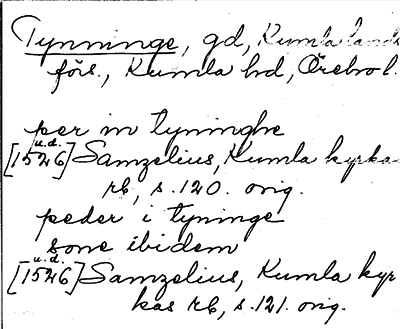 Tynninge, gd, Kumla lands
förs., Kumla hd, Örebro l.
per in tyninghe
u.d.
[1526] Samzelius, Kumla kyrka
rb, s. 120. orig.
peder i tyninge
sone ibidem
u.d.
[1526] Samzelius, Kumla kyr
kas rb, s. 121. orig.